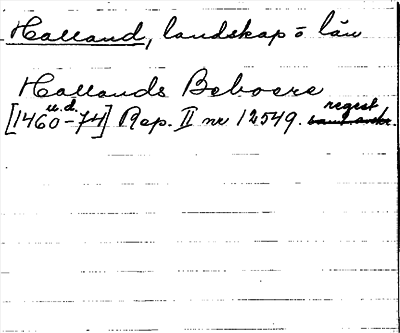 Halland, landskap o län
Hallands Beboere
u.d. regest
[1460-74] Rep. II nr 12549.